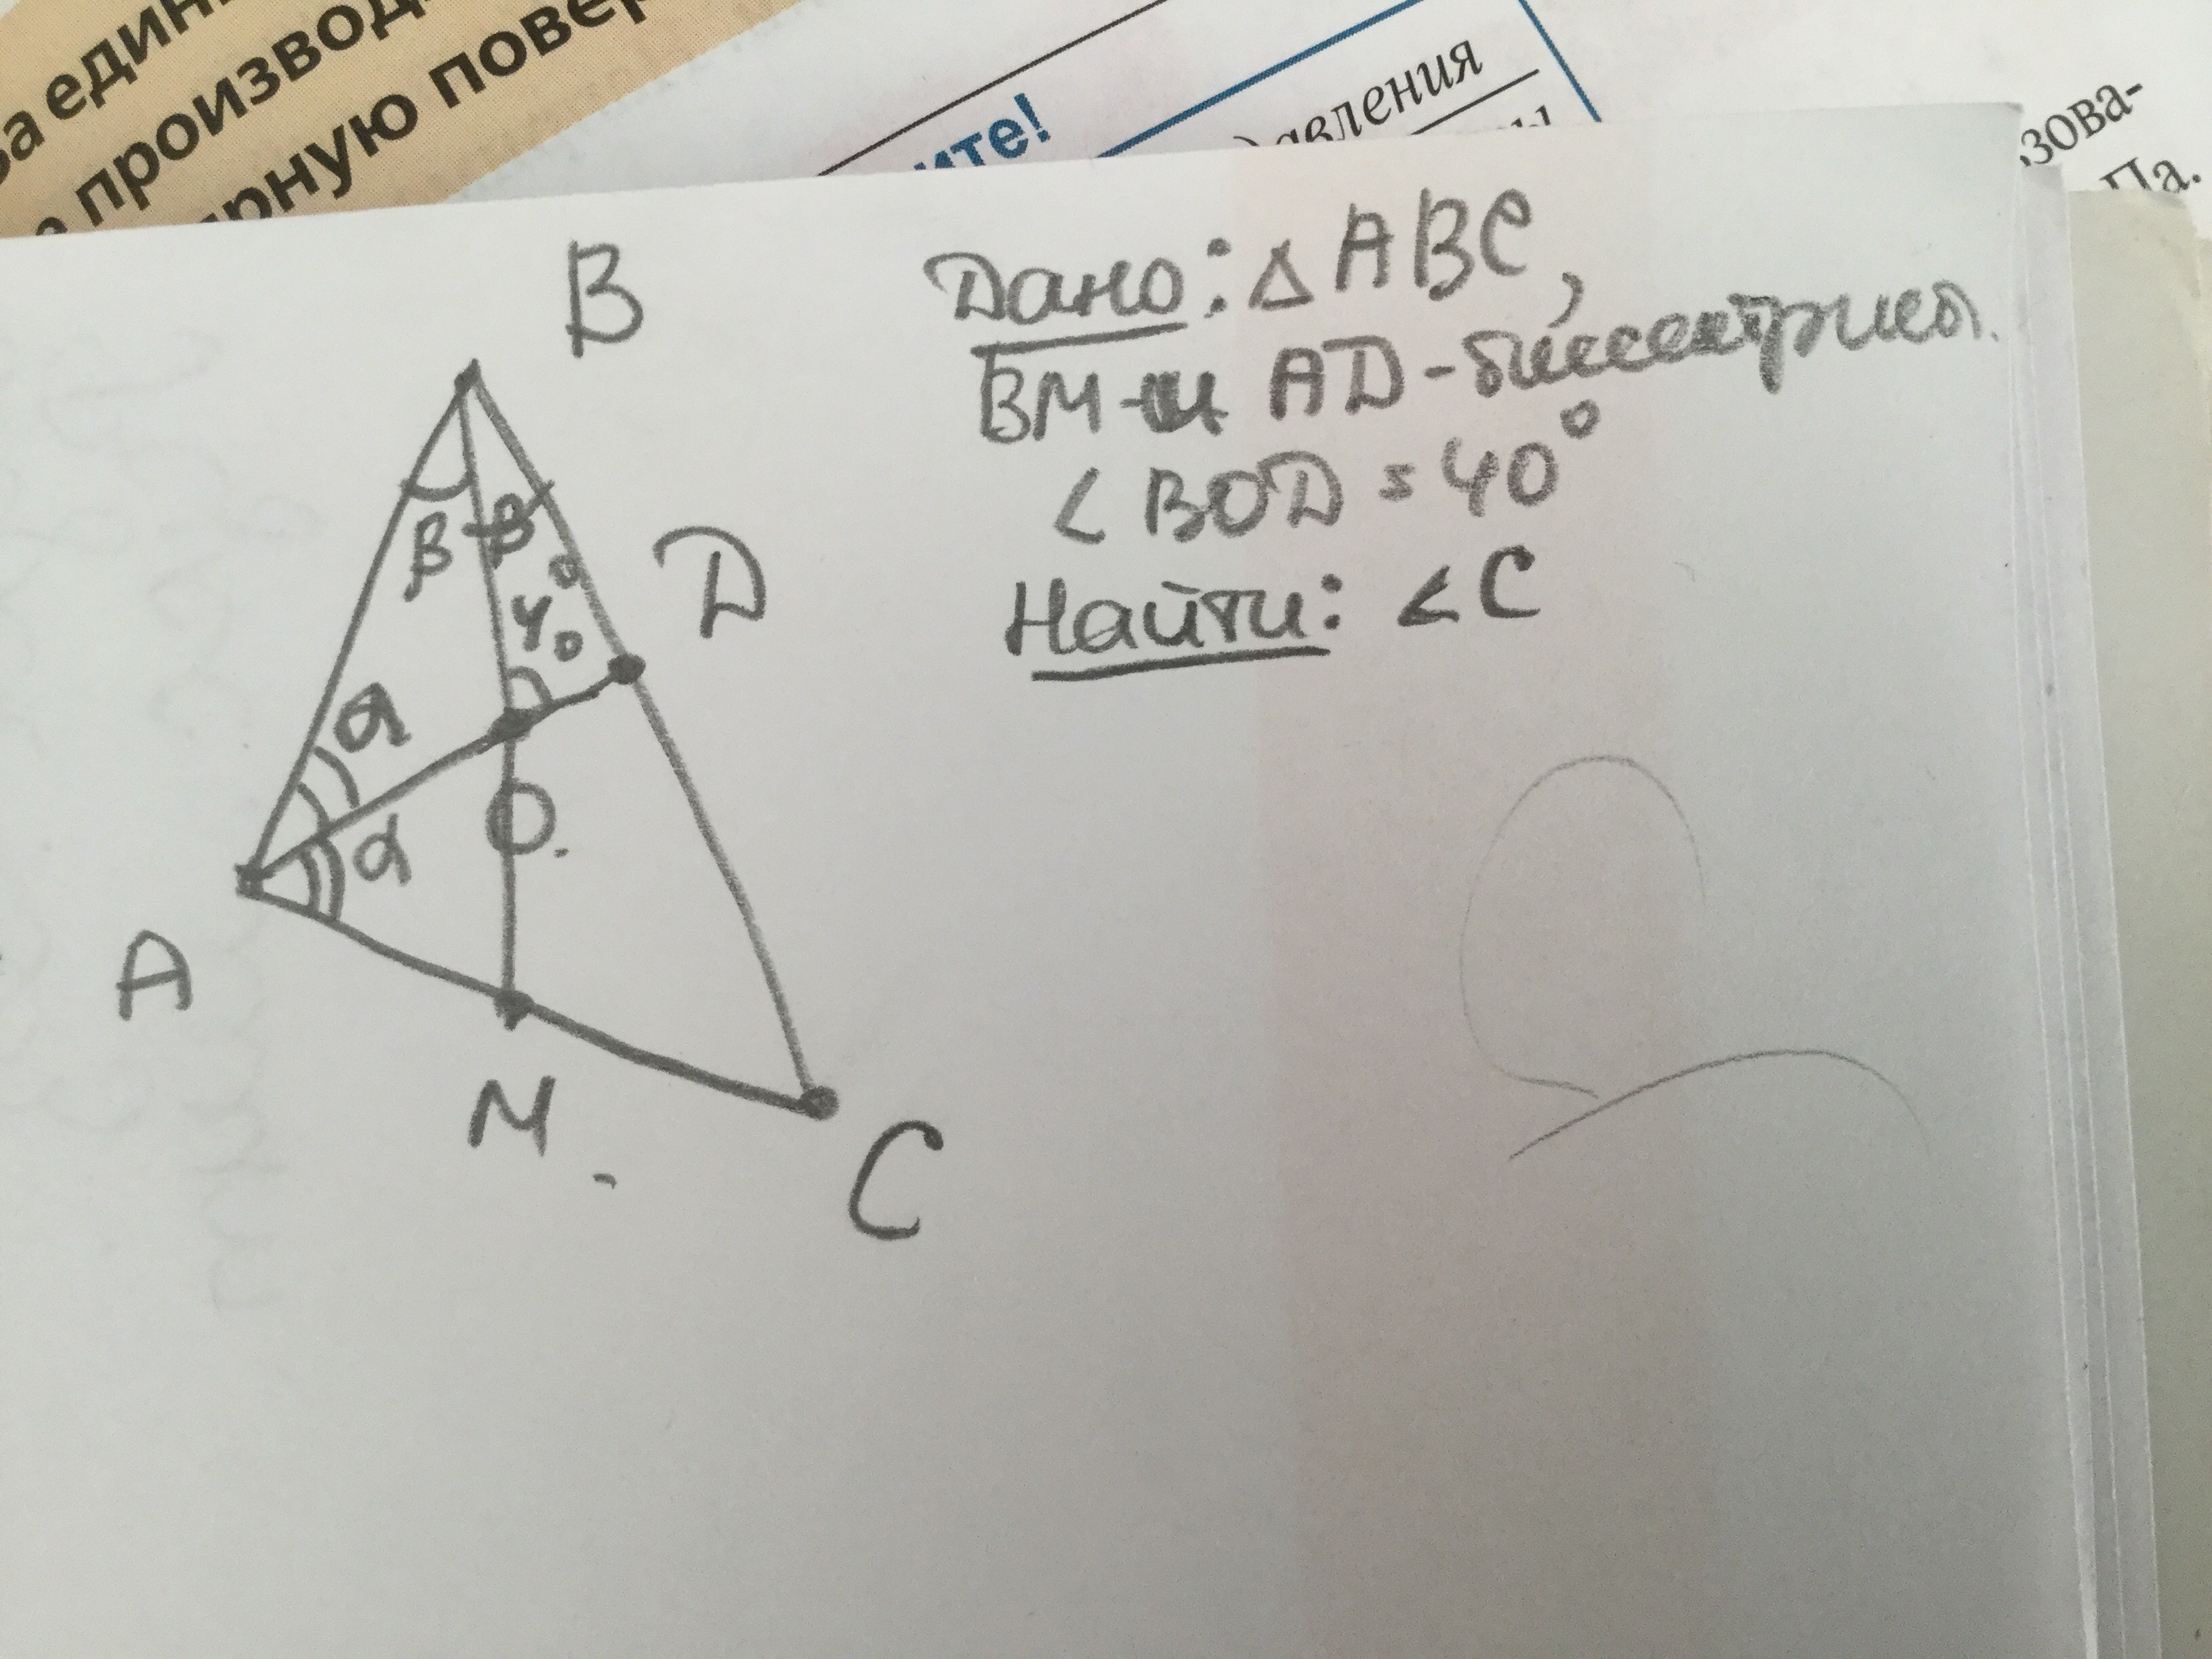 за един
производ
рную повер
ите!
давления
зова-
Па.
Дано: △ ABC,
BM и AD-биссектрисы.
∠ BOD = 40°
Найти: ∠C
B
β β
40°
D
α
α
O.
A
M.
C